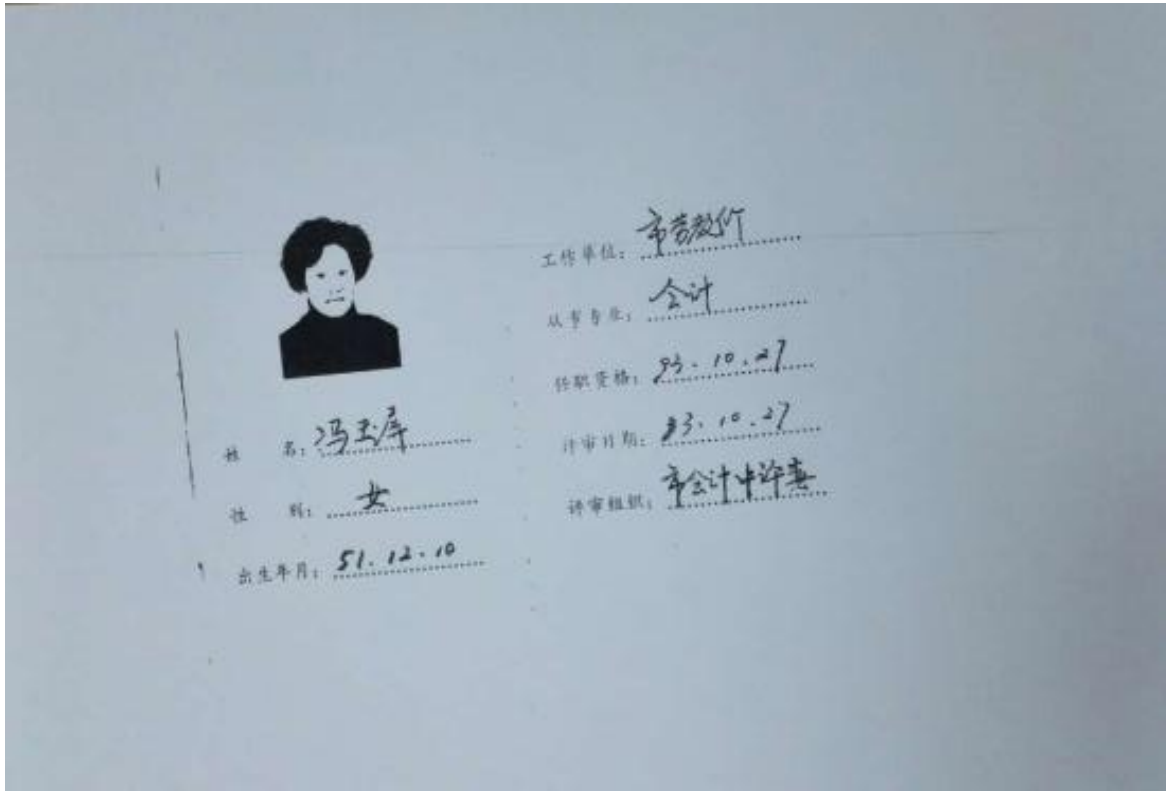 姓 名：冯玉屏
性 别：女
出生年月：51.12.10
工作单位：市劳教所
从事专业：会计
任职资格：93.10.27
评审日期：93.10.27
评审组织：市会计中评委